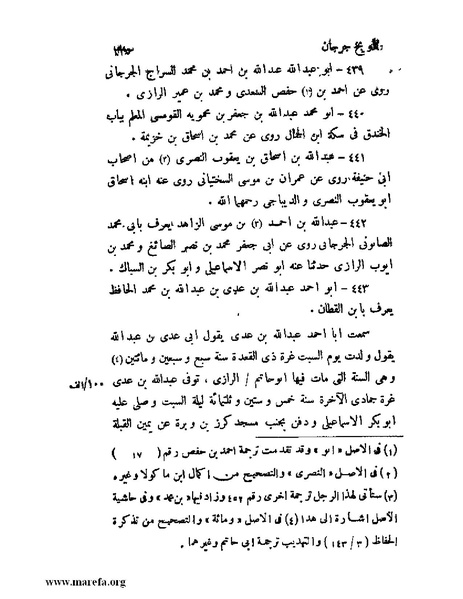 تاريخ جرجان
٤٣٩ - ابو عبدالله عبدالله بن احمد بن محمد السراج الجرجانى
روى عن احمد بن (١) حفص السعدى ومحمد بن عمير الرازى.
٤٤٠ - ابو محمد عبدالله بن جعفر بن محمويه القومسى المعلم بباب
الخندق فى سكة ابن الجمال روى عن محمد بن اسحاق بن خزيمة.
٤٤١ - عبدالله بن اسحاق بن يعقوب النصرى (٢) من اصحاب
ابى حنيفة روى عن عمران بن موسى السختيانى روى عنه ابنه اسحاق
ابو يعقوب النصرى والديباجى رحمهما الله.
٤٤٢ - عبدالله بن احمد (٣) بن موسى الزاهد يعرف بابى محمد
الصابونى الجرجانى روى عن ابى جعفر محمد بن نصر الصائغ ومحمد بن
ايوب الرازى حدثنا عنه ابو نصر الاسماعيلى وابو بكر بن السباك.
٤٤٣ - ابو احمد عبدالله بن عدى بن عبدالله بن محمد الحافظ
يعرف بابن القطان.
سمعت ابا احمد عبدالله بن عدى يقول ابى عدى بن عبدالله
يقول ولدت يوم السبت غرة ذى القعدة سنة سبع وسبعين ومائتين (٤)
وهى السنة التى مات فيها ابو حاتم / الرازى، توفى عبدالله بن عدى ١٠٠/الف
غرة جمادى الآخرة سنة خمس وستين وثلثمائة ليلة السبت وصلى عليه
ابو بكر الاسماعيلى ودفن بجنب مسجد كرز بن وبرة عن يمين القبلة
(١) فى الاصل «ابو» وقد تقدمت ترجمة احمد بن حفص رقم ( ١٧ )
(٢) فى الاصل «النضرى» والتصحيح من اكمال ابن ماكولا وغيره
(٣) ستأتى لهذا الرجل ترجمة اخرى رقم ٤٥٢ وزاد فيها «بن محمد» وفى حاشية
الأصل اشارة الى هذا (٤) فى الاصل «ومائة» والتصحيح من تذكرة
الحفاظ (٣/١٤٣) والتهذيب ترجمة ابى حاتم وغيرهما.
www.marefa.org